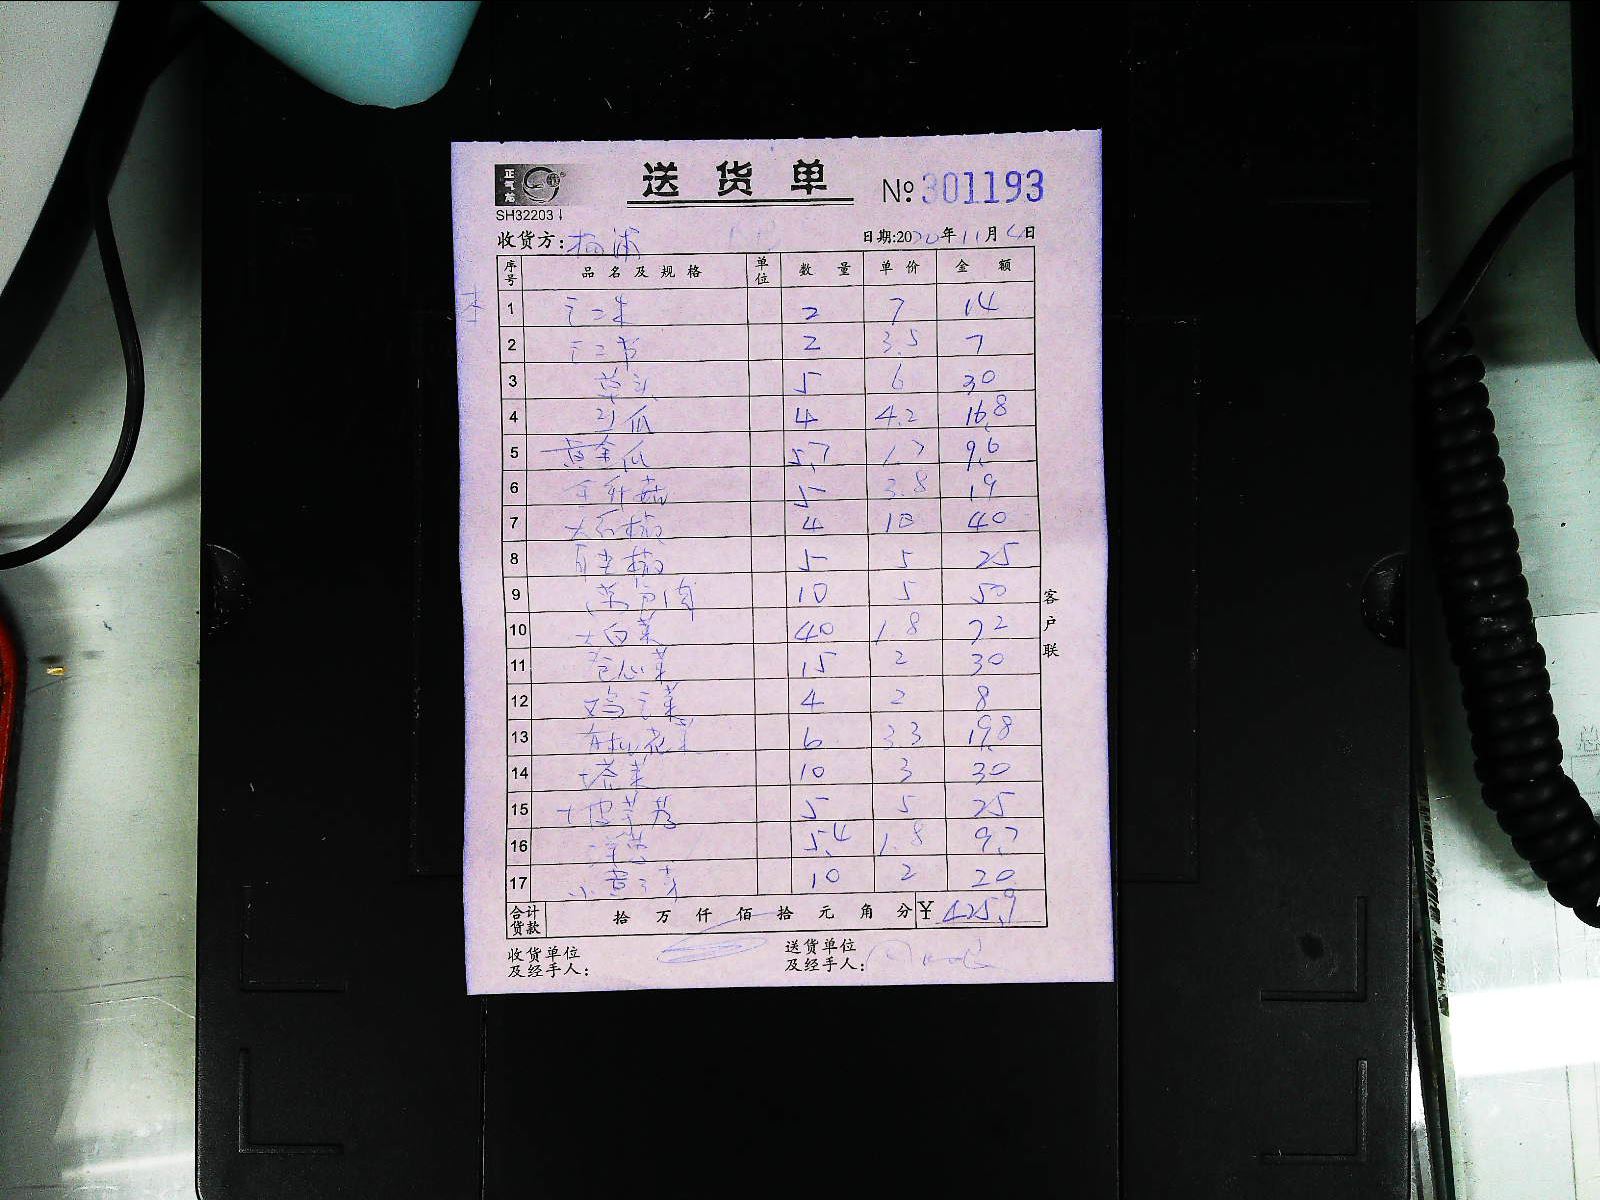 正气龙
送货单
№:301193
SH32203
收货方:
日期:2020年11月4日
序号 品名及规格 单位 数量 单价 金额
1 2 7 14
2 2 3.5 7
3 草头 5 6 30
4 瓜 4 4.2 16.8
5 黄金瓜 5.7 1.7 9.6
6 金针菇 5 3.8 19
7 大红椒 4 10 40
8 椒 5 5 25
9 10 5 50
10 大白菜 40 1.8 72
11 卷心菜 15 2 30
12 鸡毛菜 4 2 8
13 有机花菜 6 3.3 19.8
14 塔菜 10 3 30
15 5 5 25
16 洋葱 5.4 1.8 9.7
17 小黄 10 2 20
合计货款 拾 万 仟 佰 拾 元 角 分 ¥ 425.9
收货单位及经手人:
送货单位及经手人:
客户联